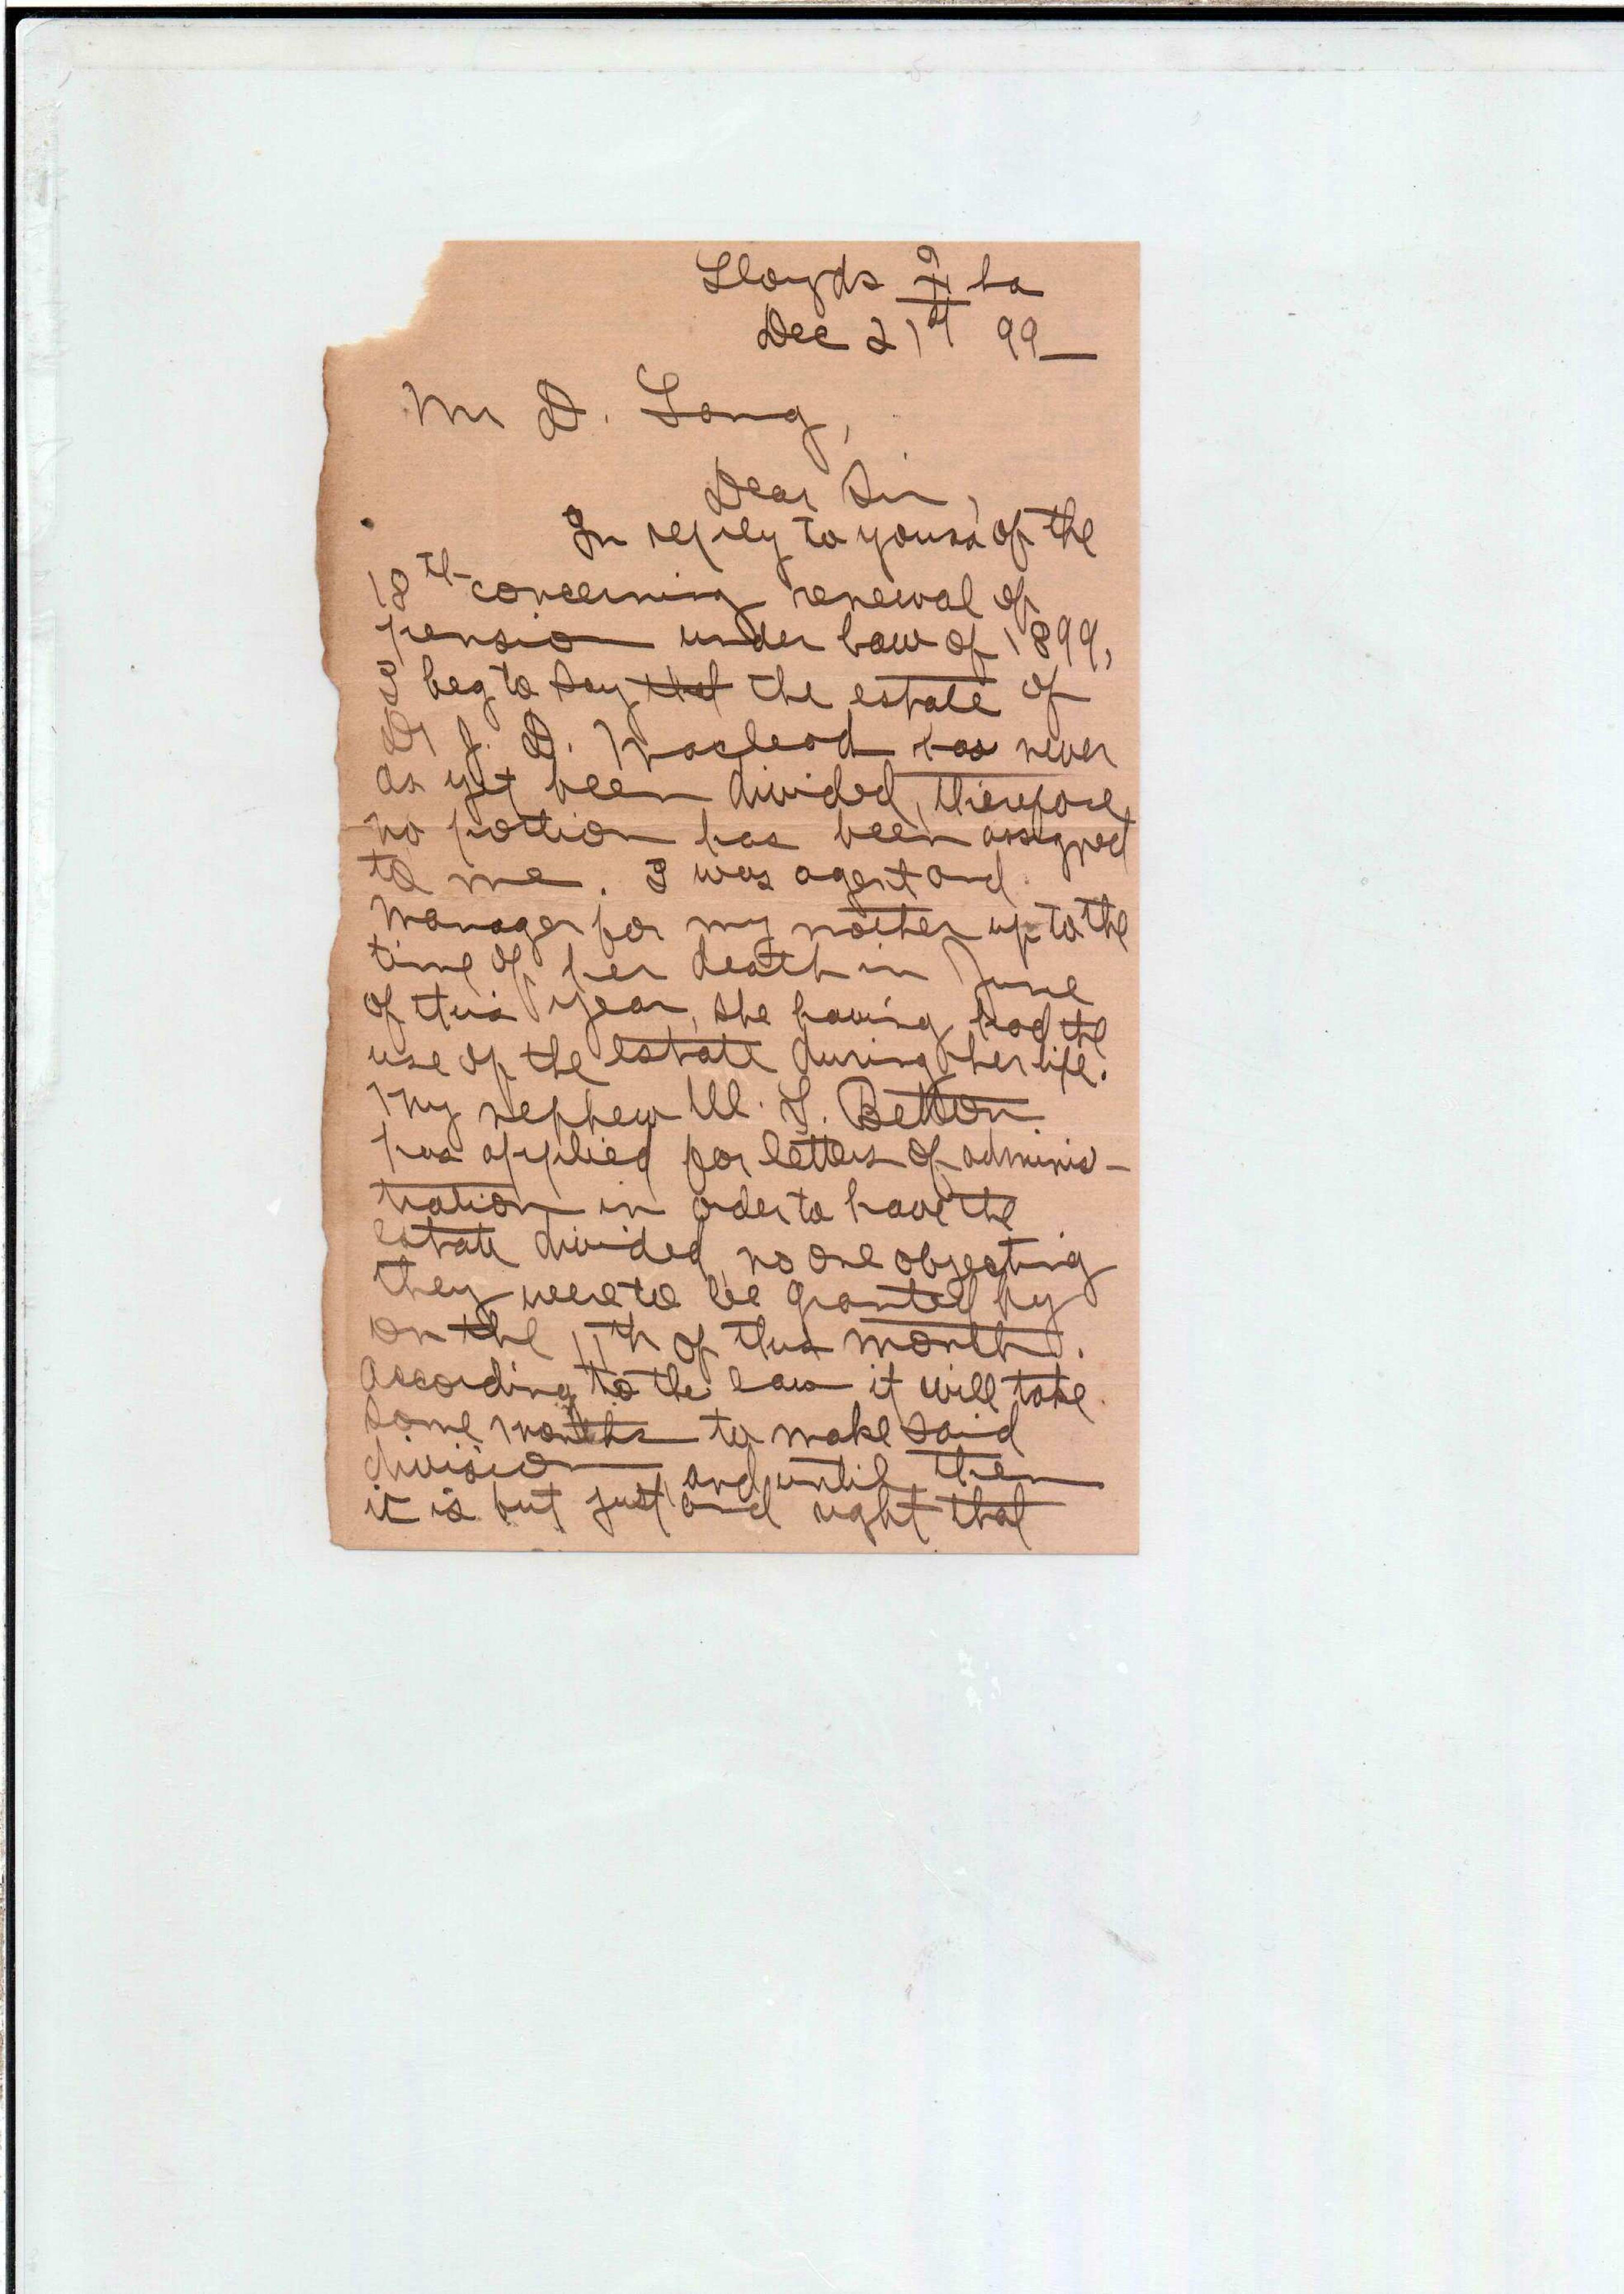 Lloyds Fla
Dec 21st 99
Mr D. Lang,
Dear Sir,
In reply to yours of the
18th concerning renewal of
pension under law of 1899,
I beg to say that the estate of
Dr J. D. Macleod has never
as yet been divided, therefore
no portion has been assigned
to me. I was agent and
manager for my mother up to the
time of her death in June
of this year, she having had the
use of the estate during her life.
My nephew W. T. Betton
has applied for letters of adminis-
tration in order to have the
estate divided, no one objecting
they were to be granted by
on the 11th of this month.
According to the law it will take
some months to make said
division and until then
it is but just and right that